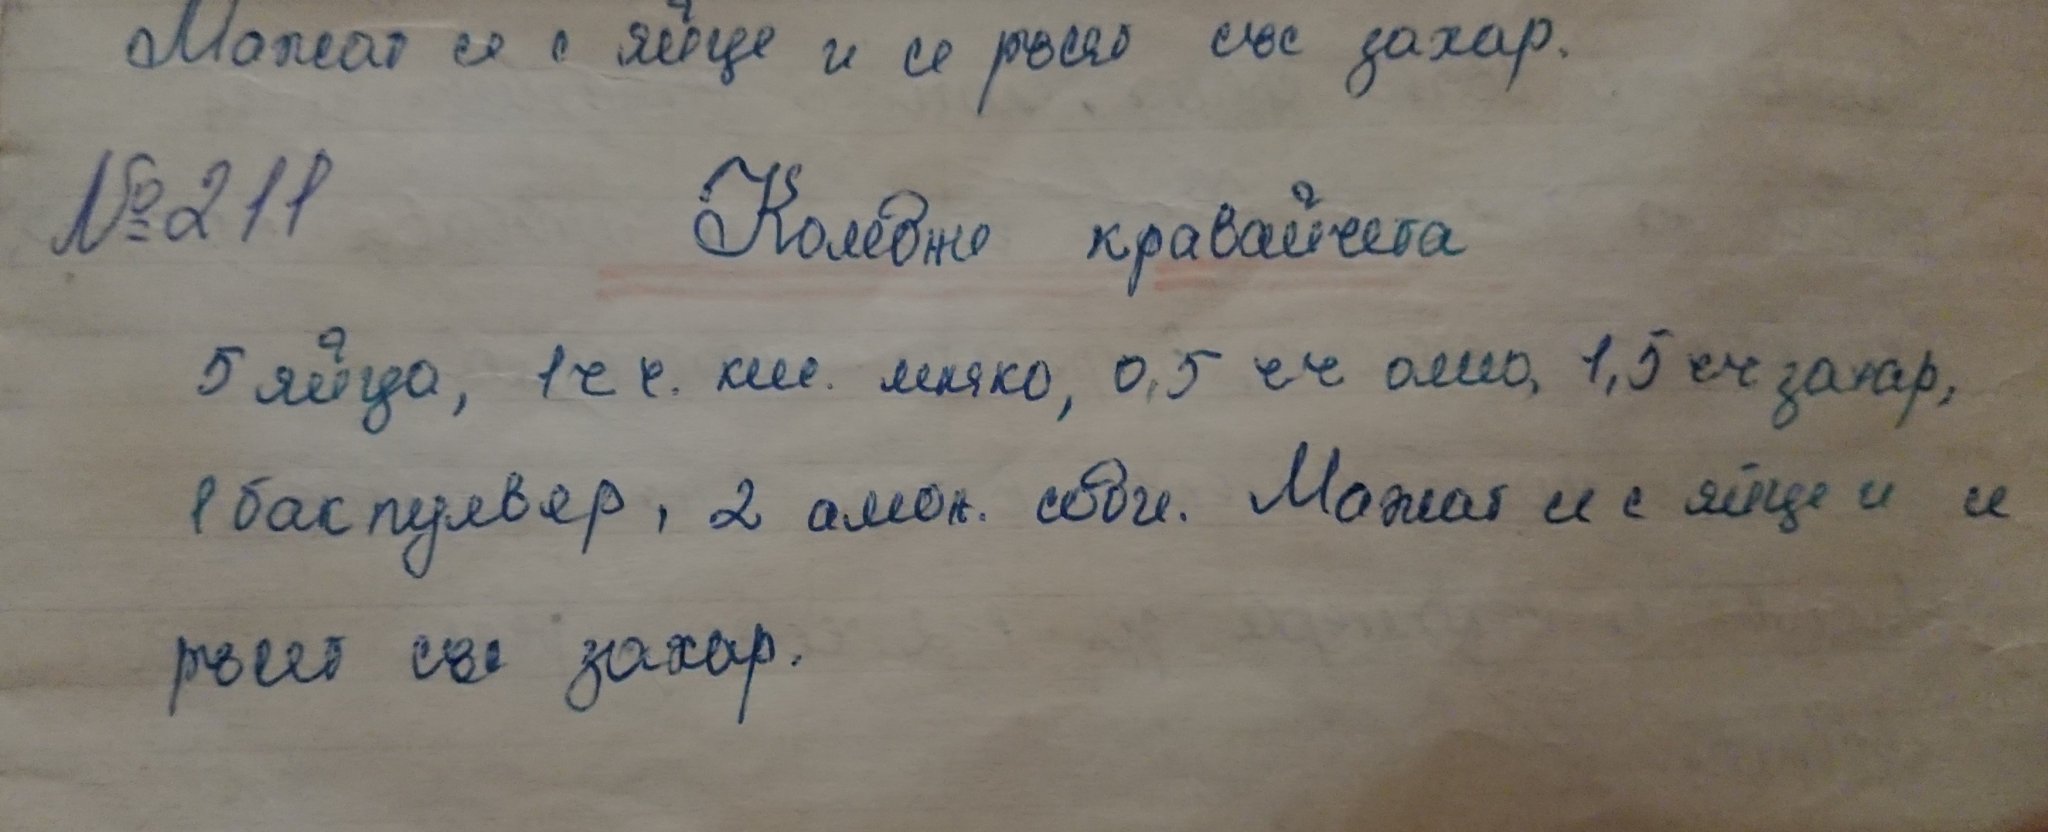 Мажат се с яйце и се ръсят със захар.
№ 211
Коледни кравайчета
5 яйца, 1 ч ч. кис. мляко, 0,5 ч ч олио, 1,5 ч ч захар,
1 бакпулвер, 2 амон. соди. Мажат се с яйце и се
ръсят със захар.